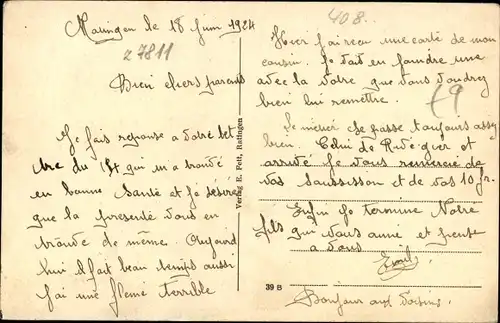 Ratingen le 18 Juin 1924
z 7811
Bien chers parents
Je fais reponse a votre let
tre du 14 qui m a trouvé
en bonne santé et je désire
que la presente vous en
trouve de même. Aujourd
hui il fait beau temps aussi
j ai une flème terrible
Verlag E. Pett, Ratingen
39 B
408
Hier j ai reçu une carte de mon
cousin. Je vait en joindre une
avec la votre que vous voudrez
bien lui remettre.
69
Le métier se passe toujours assez
bien. Celui de est
arrivé Je vous remercie de
vos saussisson et de vos 10 fr.
Enfin je termine Votre
fils qui vous aime et pense
a vous
Bonjour aux voisins